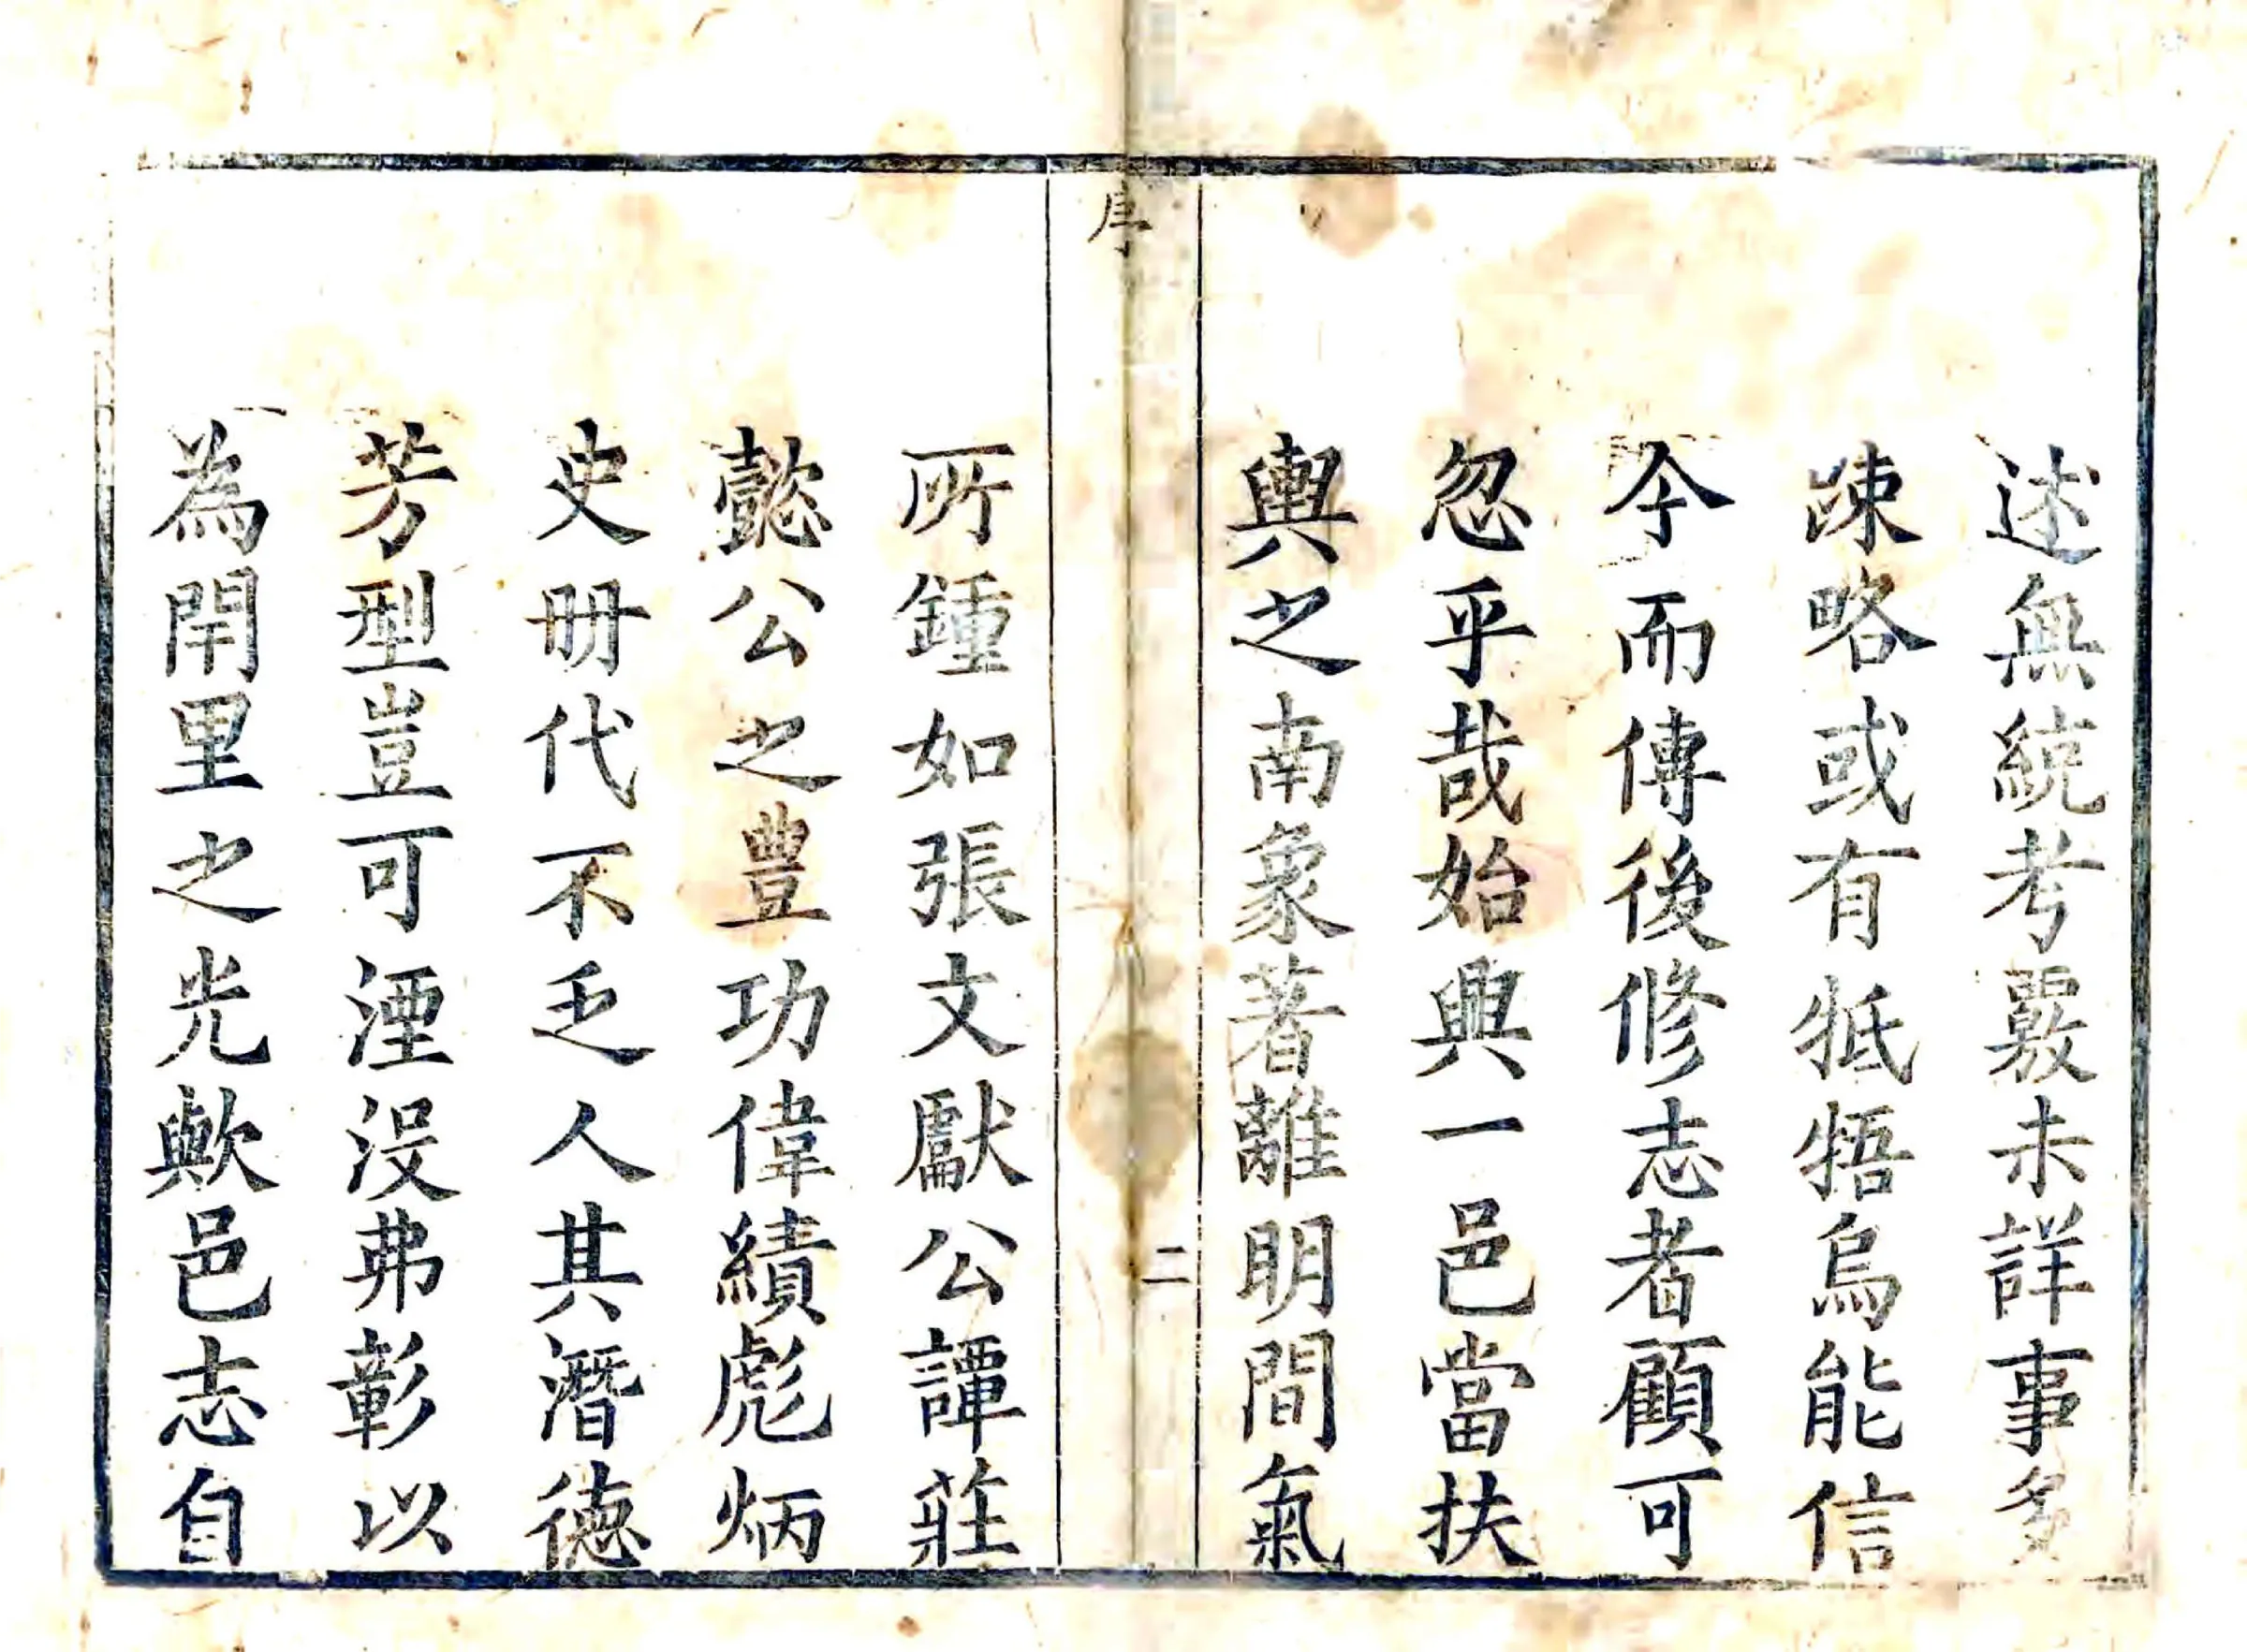 述無統考覈未詳事多
踈略或有牴牾烏能信
今而傳後修志者顧可
忽乎哉始興一邑當扶
輿之南象著離明間氣
序
二
所鍾如張文獻公譚莊
懿公之豐功偉績彪炳
史册代不乏人其潛德
芳型豈可湮没弗彰以
為閈里之光歟邑志自